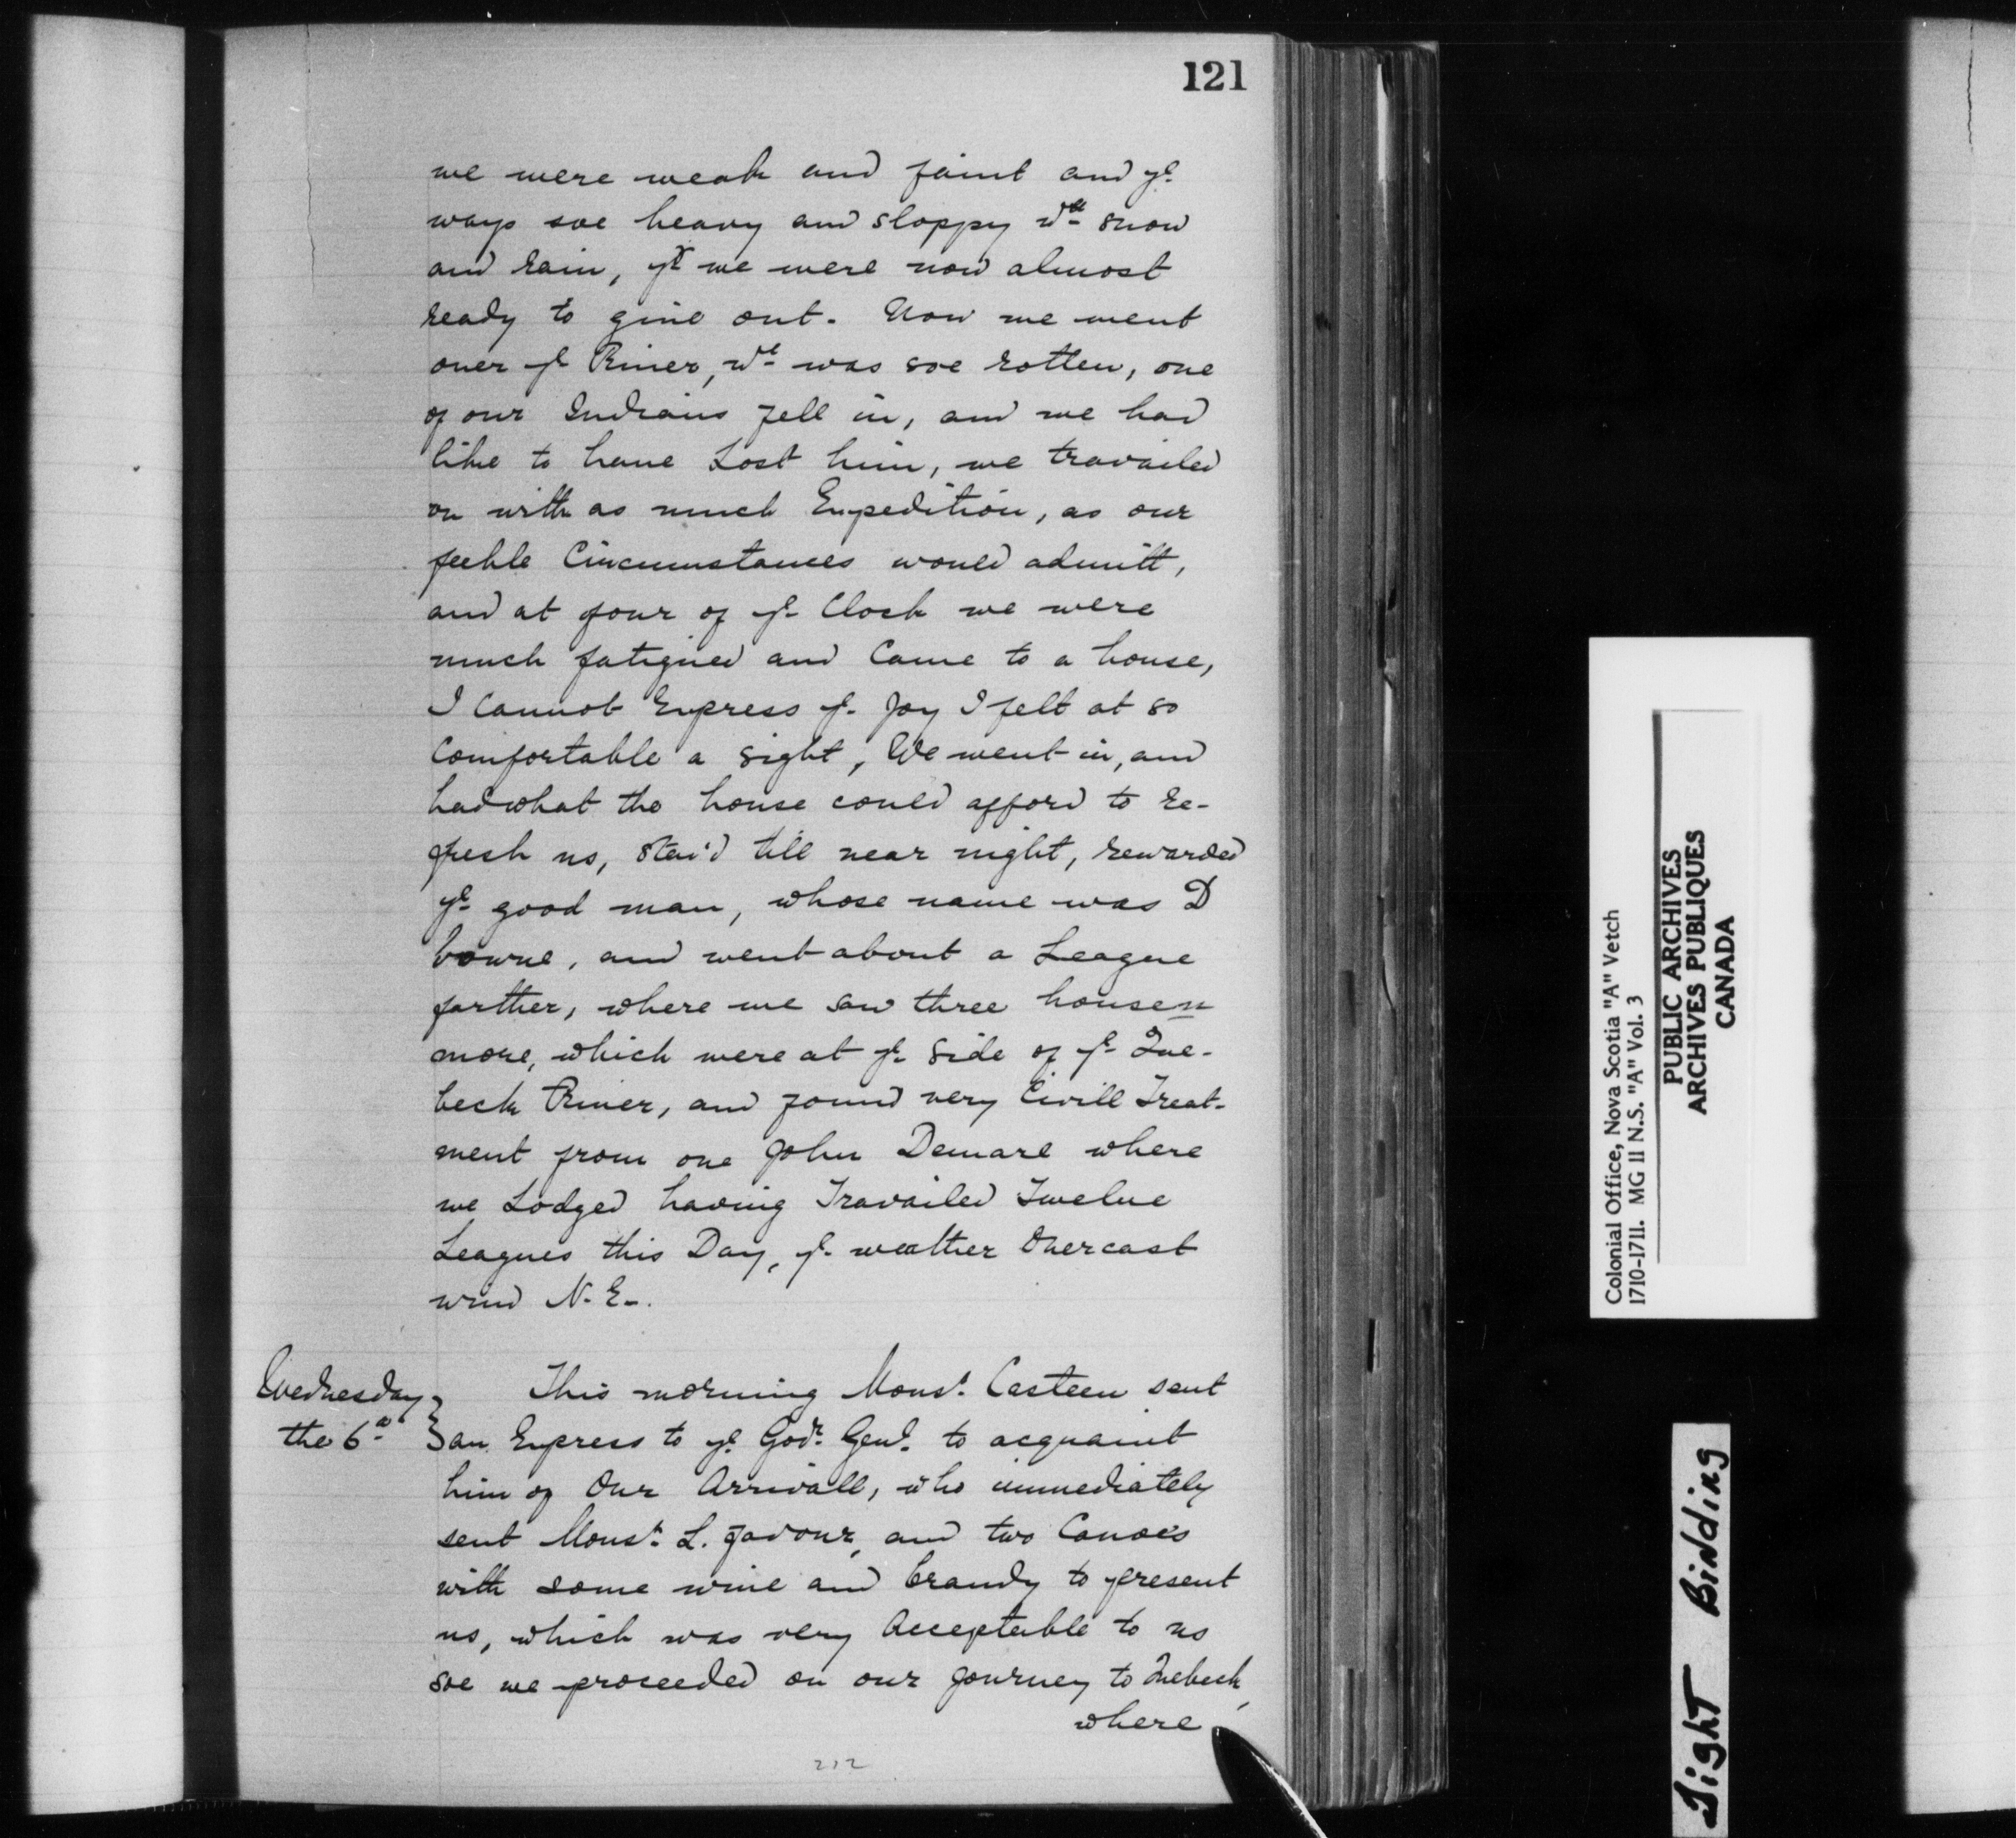 121
we were weak and faint and ye
ways soe heavy and sloppy wth snow
and rain, yt we were now almost
ready to give out. Now we went
over ye River, wch was soe rotten, one
of our Indians fell in, and we had
like to have Lost him, we travailed
on with as much Expedition, as our
feeble Circumstances would admitt,
and at four of ye Clock we were
much fatigued and Came to a house,
I Cannot Express ye Joy I felt at so
Comfortable a sight, We went in, and
had what the house could afford to re-
fresh us, stai'd till near night, rewarded
ye good man, whose name was D
bowne, and went about a League
farther, where we saw three housen
more, which were at ye side of ye Que-
beck River, and found very Civill Treat-
ment from one John Demare where
we Lodged having Travailed Twelve
Leagues this Day, ye weather Overcast
wind N. E.
Wednesday
the 6th
This morning Monsr. Casteen sent
an Express to ye Govr. Genl. to acquaint
him of Our Arrivall, who immediately
sent Monsr. L. favour, and two Canoes
with some wine and brandy to present
us, which was very Acceptable to us
soe we proceeded on our Journey to Quebeck,
where
212
Colonial Office, Nova Scotia "A" Vetch
1710-1711. MG 11 N.S. "A" Vol. 3
PUBLIC ARCHIVES
ARCHIVES PUBLIQUES
CANADA
Tight Binding